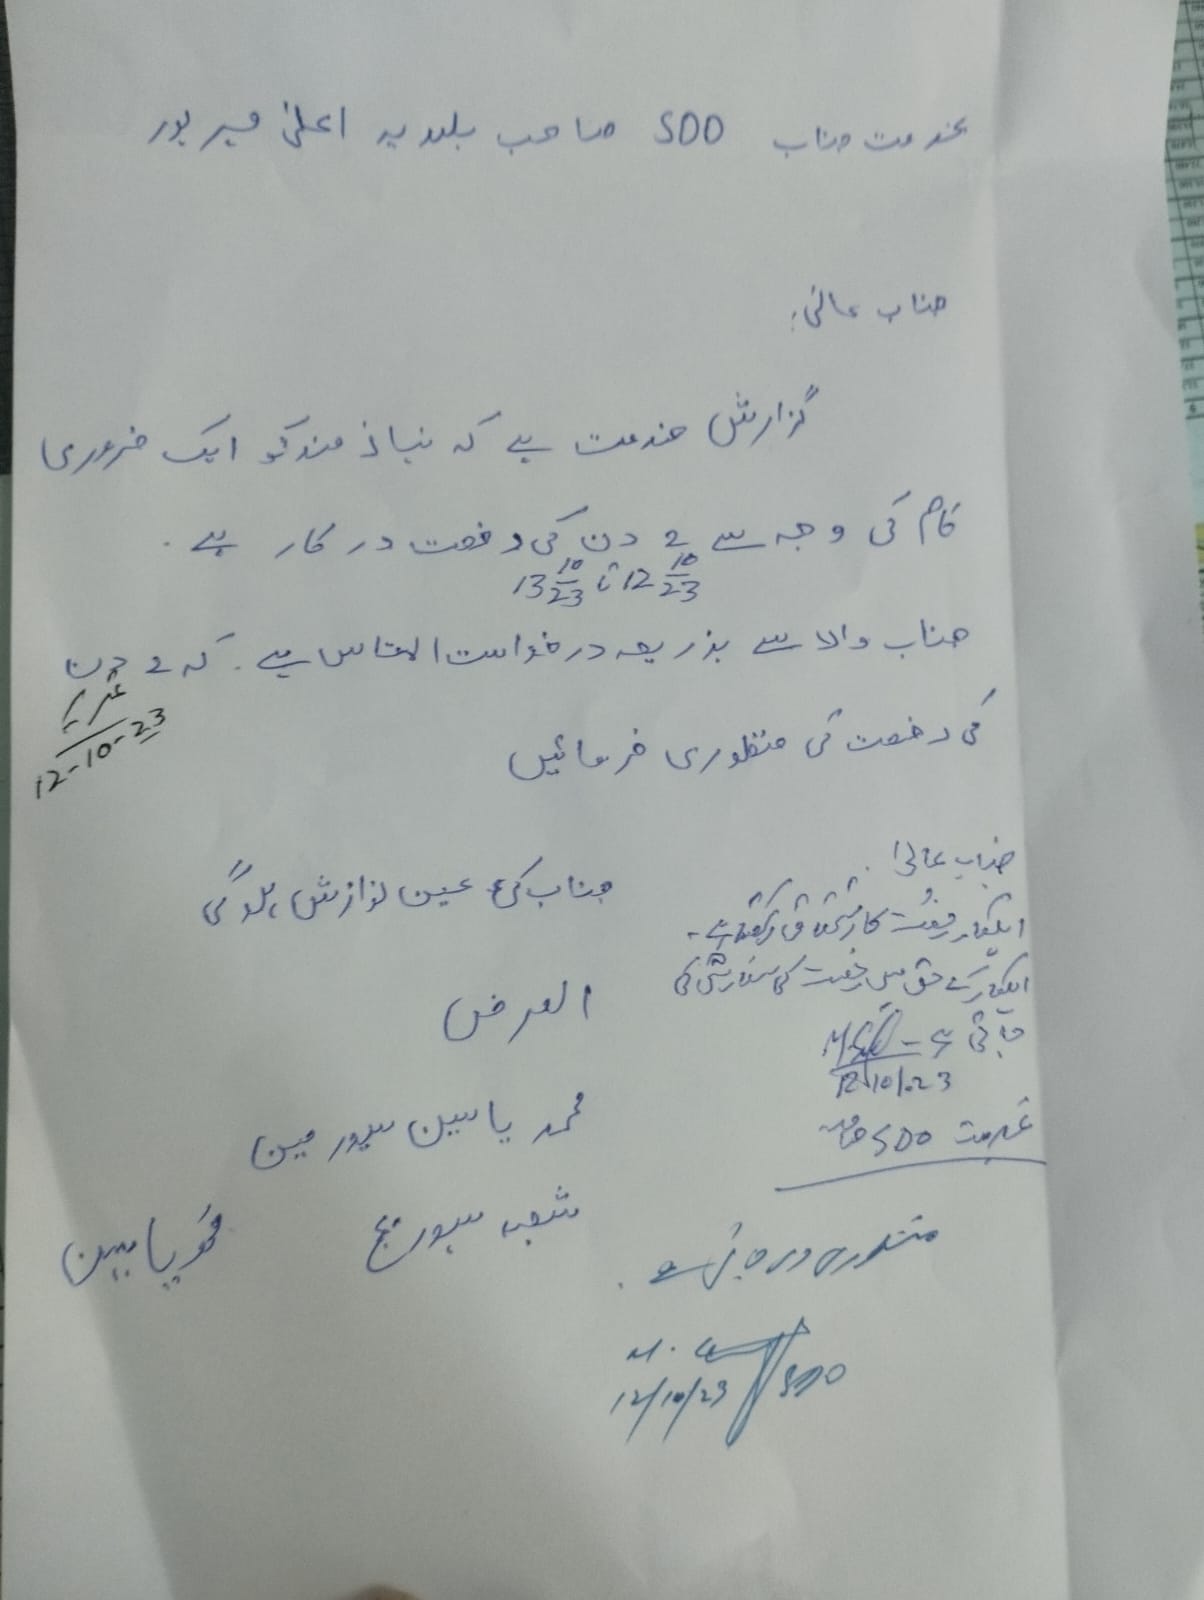 بخدمت جناب SDO صاحب بلدیہ اعلیٰ میرپور
جناب عالی!
گزارش خدمت ہے کہ نیاز مند کو ایک ضروری
کام کی وجہ سے 2 دن کی رخصت درکار ہے۔
12 10/23 تا 13 10/23
جناب والا سے بذریعہ درخواست التماس ہے۔ کہ 2 دن
کی رخصت کی منظوری فرمائیں
12-10-23
جناب کی عین نوازش ہو گی
العرض
محمد یاسین سیورمین
شعبہ سیوریج
محمد یاسین
جناب عالی!
اہلکار رخصت کا استحقاق رکھتا ہے۔
اہلکار کے حق میں رخصت کی سفارش کی
جاتی ہے
12/10/23
بخدمت SDO صاحب
منظوری دی جاتی ہے۔
12/10/23 SDO